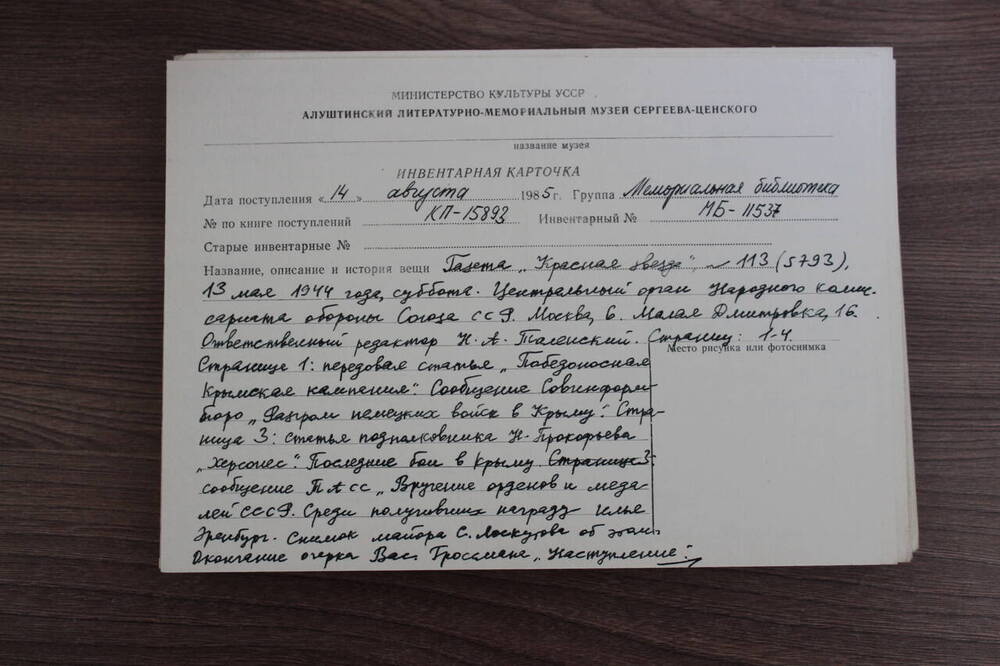 МИНИСТЕРСТВО КУЛЬТУРЫ УССР
АЛУШТИНСКИЙ ЛИТЕРАТУРНО-МЕМОРИАЛЬНЫЙ МУЗЕЙ СЕРГЕЕВА-ЦЕНСКОГО
название музея
ИНВЕНТАРНАЯ КАРТОЧКА
Дата поступления «14» августа 1985 г. Группа Мемориальная библиотека
№ по книге поступлений КП-15893 Инвентарный № МБ-11537
Старые инвентарные №
Название, описание и история вещи Газета „Красная звезда", № 113 (5793),
13 мая 1944 года, суббота. Центральный орган Народного комис-
сариата обороны Союза ССР. Москва, 6. Малая Дмитровка, 16.
Ответственный редактор Н. А. Таленский. Страниц: 1-4.
Место рисунка или фотоснимка
Странице 1: передовая статья „Победоносная
Крымская кампания". Сообщение Совинформ-
бюро „Разгром немецких войск в Крыму". Стра-
ница 3: статья подполковника Н. Прокофьева
„Херсонес". Последние бои в Крыму. Странице 3:
сообщение ТАСС „Вручение орденов и меда-
лей СССР. Среди получивших награду Илья
Эренбург. Снимок майора С. Лоскутова об этом.
Окончание очерка Вас. Гроссмана „Наступление".